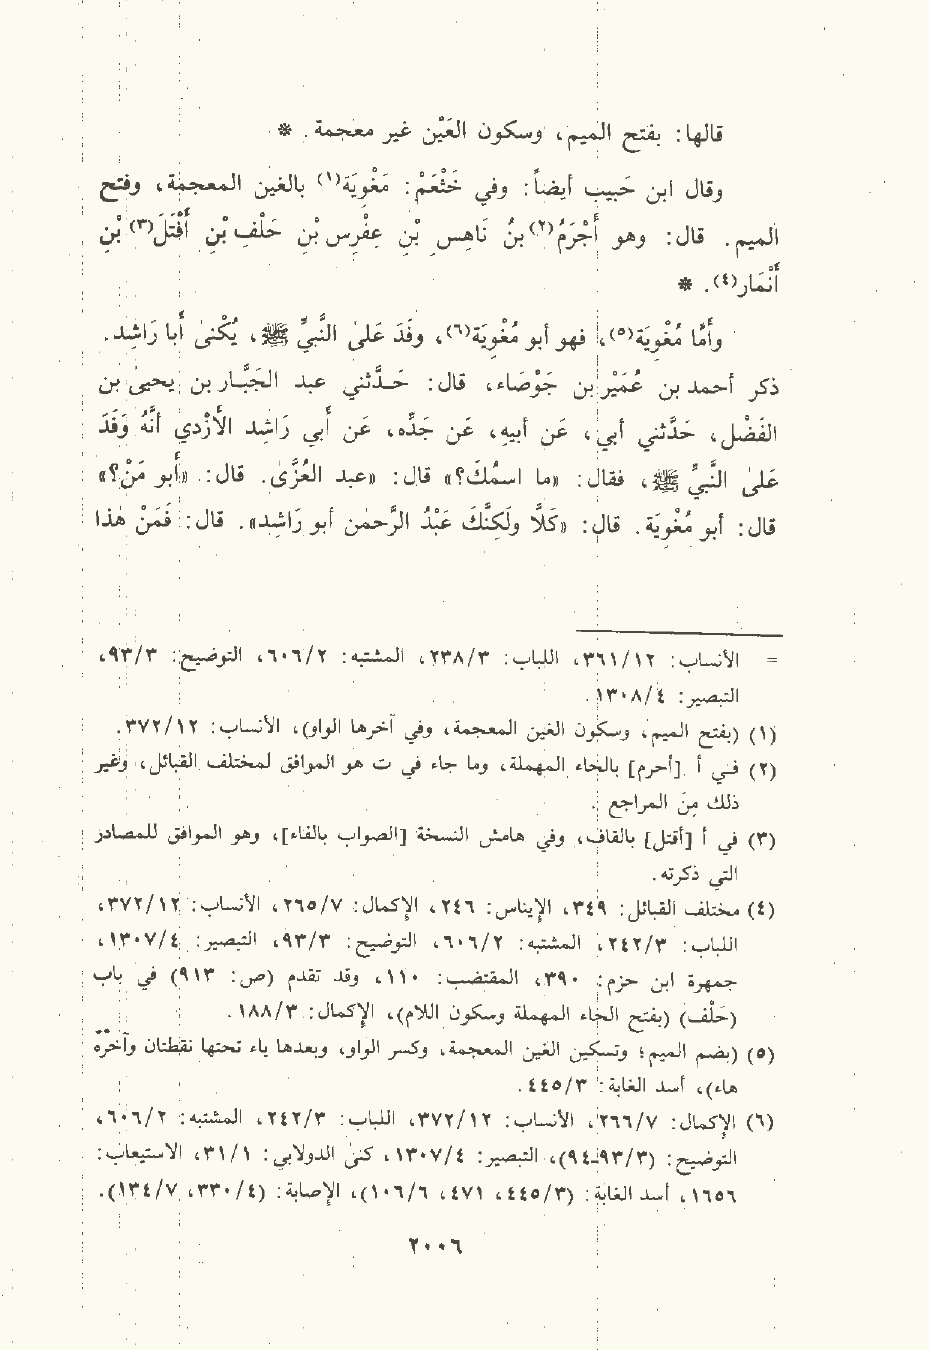 قالها: بفتح الميم، وسكون العَيْن غير معجمة. *
وقال ابن حَبيب أيضاً: وفي خَثْعَم: مَغْوِيَة(١) بالغين المعجمة، وفتح
الميم. قال: وهو أَجْرَمُ(٢) بنُ نَاهِسِ بْنِ عِفْرِس بْنِ حَلْفِ بْنِ أَفْتَلَ(٣) بْنِ
أَنْمَار(٤). *
وأمَّا مُغْوِيَة(٥)، فهو أبو مُغْوِيَة(٦)، وفَدَ عَلىٰ النَّبيِّ ﷺ، يُكْنىٰ أبا رَاشِد.
ذكر أحمد بن عُمَيْر بن جَوْصَاء، قال: حَـدَّثني عبد الجَبَّـار بن يحيىٰ بن
الفَضْل، حَدَّثني أبي، عَن أبيهِ، عَن جَدِّه، عَن أبي رَاشِد الأزْدي أنَّهُ وَفَدَ
عَلىٰ النَّبيِّ ﷺ، فقال: «ما اسمُكَ؟» قال: «عبد العُزَّىٰ. قال: «أبو مَنْ؟»
قال: أبو مُغْوِيَة. قال: «كَلَّا ولَكِنَّكَ عَبْدُ الرَّحمٰن أبو رَاشِد». قال: فَمَنْ هٰذا
= الأنساب: ٣٦١/١٢، اللباب: ٢٣٨/٣، المشتبه: ٦٠٦/٢، التوضيح: ٩٣/٣،
التبصير: ١٣٠٨/٤.
(١) (بفتح الميم، وسكون الغين المعجمة، وفي آخرها الواو)، الأنساب: ٣٧٢/١٢.
(٢) فـي أ [أحرم] بالحاء المهملة، وما جاء في ت هو الموافق لمختلف القبائل، وغير
ذلك مِنَ المراجع.
(٣) في أ [أقتل] بالقاف، وفي هامش النسخة [الصواب بالفاء]، وهو الموافق للمصادر
التي ذكرته.
(٤) مختلف القبائل: ٣٤٩، الإيناس: ٢٤٦، الإكمال: ٢٦٥/٧، الأنساب: ٣٧٢/١٢،
اللباب: ٢٤٢/٣، المشتبه: ٦٠٦/٢، التوضيح: ٩٣/٣، التبصير: ١٣٠٧/٤،
جمهرة ابن حزم: ٣٩٠، المقتضب: ١١٠، وقد تقدم (ص: ٩١٣) في باب
(حَلْف) (بفتح الحاء المهملة وسكون اللام)، الإكمال: ١٨٨/٣.
(٥) (بضم الميم؛ وتسكين الغين المعجمة، وكسر الواو، وبعدها ياء تحتها نقطتان وآخره
هاء)، أسد الغابة: ٤٤٥/٣.
(٦) الإكمال: ٢٦٦/٧، الأنساب: ٣٧٢/١٢، اللباب: ٢٤٢/٣، المشتبه: ٦٠٦/٢،
التوضيح: (٩٣/٣-٩٤)، التبصير: ١٣٠٧/٤، كنىٰ الدولابي: ٣١/١، الاستيعاب:
١٦٥٦، أسد الغابة: (٤٤٥/٣، ٤٧١، ١٠٦/٦)، الإصابة: (٣٣٠/٤، ١٣٤/٧).
٢٠٠٦